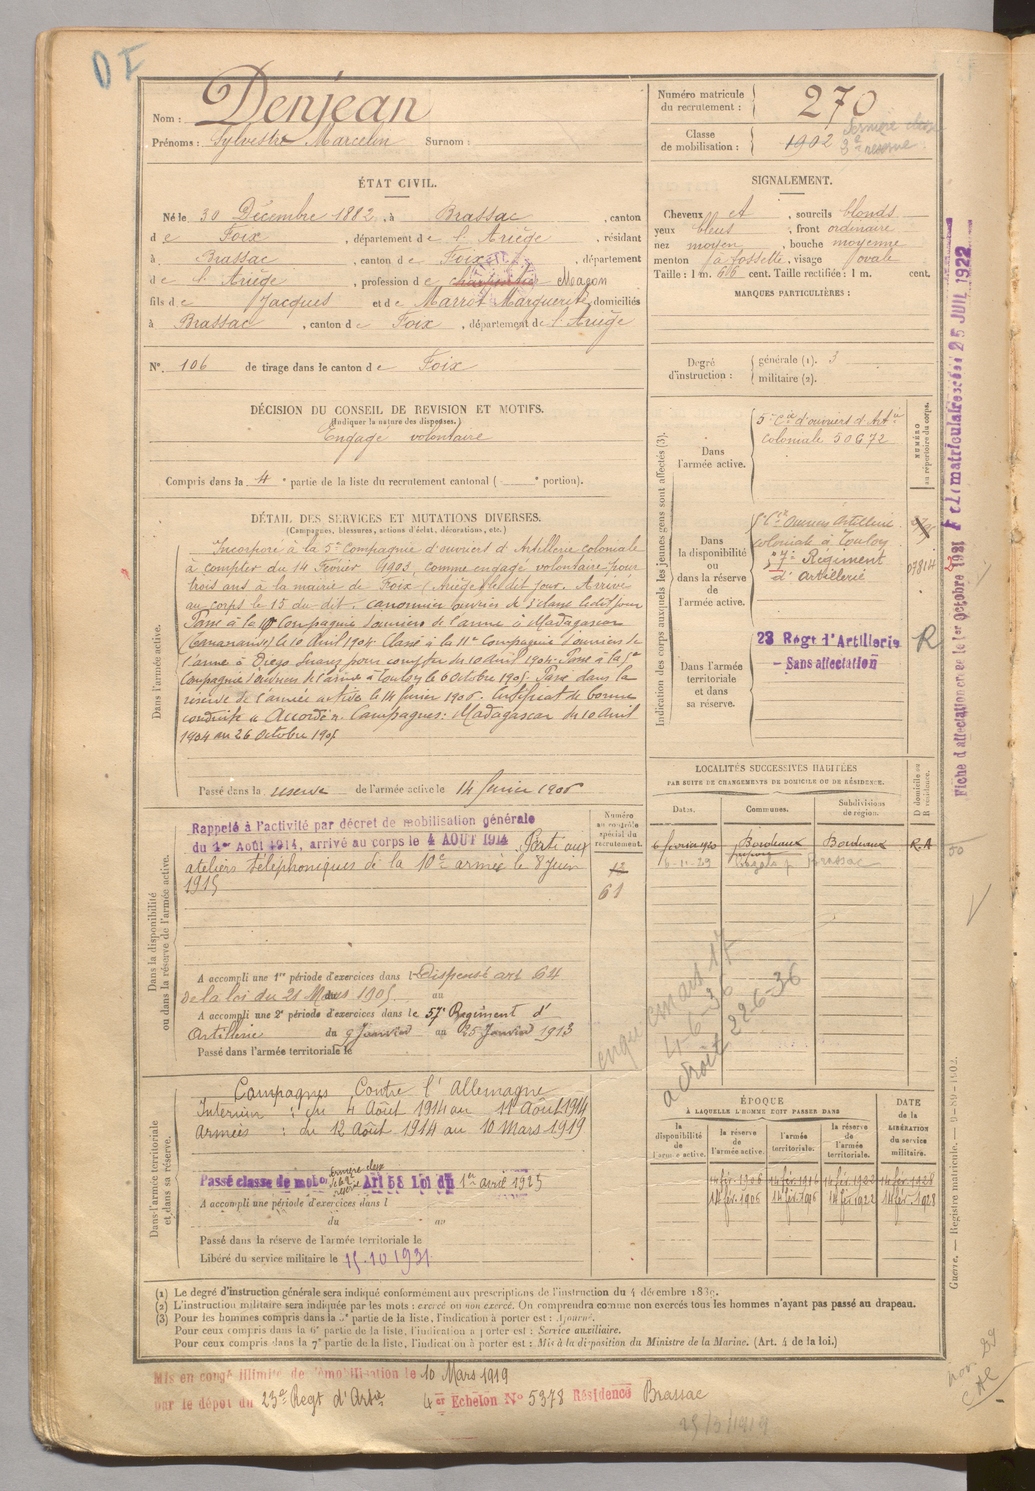 DI
Nom : Denjean
Prénoms : Sylvestre Marcelin Surnom :
Numéro matricule du recrutement : 270
Classe de mobilisation : 1902 dernière classe 2e réserve
ÉTAT CIVIL.
Né le 30 Décembre 1882, à Brassac, canton
de Foix, département de l'Ariège, résidant
à Brassac, canton de Foix, département
de l'Ariège, profession de charpentier Maçon
fils de Jacques et de Marrot Marguerite, domiciliés
à Brassac, canton de Foix, département de l'Ariège
N° 106 de tirage dans le canton de Foix
SIGNALEMENT.
Cheveux et , sourcils blonds
yeux bleus , front ordinaire
nez moyen , bouche moyenne
menton à fossette , visage ovale
Taille : 1 m. 66 cent. Taille rectifiée : 1 m. cent.
MARQUES PARTICULIÈRES :
Degré d'instruction : générale (1). 3
militaire (2).
DÉCISION DU CONSEIL DE REVISION ET MOTIFS.
(Indiquer la nature des dispenses.)
Engagé volontaire
Compris dans la 4e partie de la liste du recrutement cantonal ( e portion).
DÉTAIL DES SERVICES ET MUTATIONS DIVERSES.
(Campagnes, blessures, actions d'éclat, décorations, etc.)
Dans l'armée active.
Incorporé à la 5e Compagnie d'ouvriers d'Artillerie coloniale
à compter du 14 Février 1903, comme engagé volontaire pour
trois ans à la mairie de Foix (Ariège) le dit jour. Arrivé
au corps le 15 du dit. canonnier ouvrier de 2e classe le dit jour
Passé à la Compagnie d'ouvriers de l'arme à Madagascar
(Tananarive) le 10 Avril 1904. Classé à la 11e Compagnie d'ouvriers de
l'arme à Diego Suarez pour compter du 10 Avril 1904. Passé à la 5e
Compagnie d'ouvriers de l'arme à Toulon le 6 Octobre 1905. Passé dans la
réserve de l'armée active le 14 février 1906. Certificat de bonne
conduite "Accordé". Campagnes : Madagascar du 10 Avril
1904 au 26 octobre 1905
Passé dans la réserve de l'armée active le 14 février 1906
Indication des corps auxquels les jeunes gens sont affectés (3).
NUMÉRO au répertoire du corps.
Dans l'armée active.
5e Cie d'ouvriers d'Artie
coloniale 50672
Dans la disponibilité ou dans la réserve de l'armée active.
5e Cie Ouvriers Artillerie
coloniale à Toulon
57e Régiment
d'artillerie
07814
Dans l'armée territoriale et dans sa réserve.
23 Régt d'Artillerie R
- Sans affectation
Fiche d'affectation créée le 1er Octobre 1921
Feuillet matriculaire créé 25 JUIL 1922
LOCALITÉS SUCCESSIVES HABITÉES
PAR SUITE DE CHANGEMENTS DE DOMICILE OU DE RÉSIDENCE.
Dates. Communes. Subdivisions de région. D domicile ou R résidence.
6 février 1920 Bordeaux Bordeaux R.A
6-11-29 Brassac
Dans la disponibilité ou dans la réserve de l'armée active.
Numéro au contrôle spécial du recrutement.
12
61
Rappelé à l'activité par décret de mobilisation générale
du 1er Août 1914, arrivé au corps le 4 AOUT 1914. Parti aux
ateliers téléphoniques de la 10e armée le 8 juin
1915
A accompli une 1re période d'exercices dans l Dispensé art 64
de la loi du 21 Mars 1905 au
A accompli une 2e période d'exercices dans le 57e Régiment d'
Artillerie du 9 Janvier au 25 Janvier 1913
Passé dans l'armée territoriale le
4-6-36
à droit 22-6-36
Dans l'armée territoriale et dans sa réserve.
Campagnes Contre l'Allemagne
Intérieur : du 4 Août 1914 au 11 Août 1914
Armées : du 12 Août 1914 au 10 Mars 1919
Passé classe de mob dernière classe de la 2e réserve Art 58 Loi du 1er avril 1923
A accompli une période d'exercices dans l
du au
Passé dans la réserve de l'armée territoriale le
Libéré du service militaire le 15.10 1931
ÉPOQUE
À LAQUELLE L'HOMME DOIT PASSER DANS
la disponibilité de l'armée active. la réserve de l'armée active. l'armée territoriale. la réserve de l'armée territoriale.
DATE de la LIBÉRATION du service militaire.
14 fév. 1906 14 fév. 1916 14 fév. 1922 14 fév. 1928
14 fév. 1906 14 fév. 1916 14 fév. 1922 14 fév. 1928
(1) Le degré d'instruction générale sera indiqué conformément aux prescriptions de l'instruction du 4 décembre 1889.
(2) L'instruction militaire sera indiquée par les mots : exercé ou non exercé. On comprendra comme non exercés tous les hommes n'ayant pas passé au drapeau.
(3) Pour les hommes compris dans la 5e partie de la liste, l'indication à porter est : Ajourné.
Pour ceux compris dans la 6e partie de la liste, l'indication à porter est : Service auxiliaire.
Pour ceux compris dans la 7e partie de la liste, l'indication à porter est : Mis à la disposition du Ministre de la Marine. (Art. 4 de la loi.)
Guerre. — Registre matricule. — 9-89-1902.
Mis en congé illimité de démobilisation le 10 Mars 1919
par le dépôt du 23e Régt d'Artie 4er Echelon N° 5378 Résidence Brassac
25/3/1919